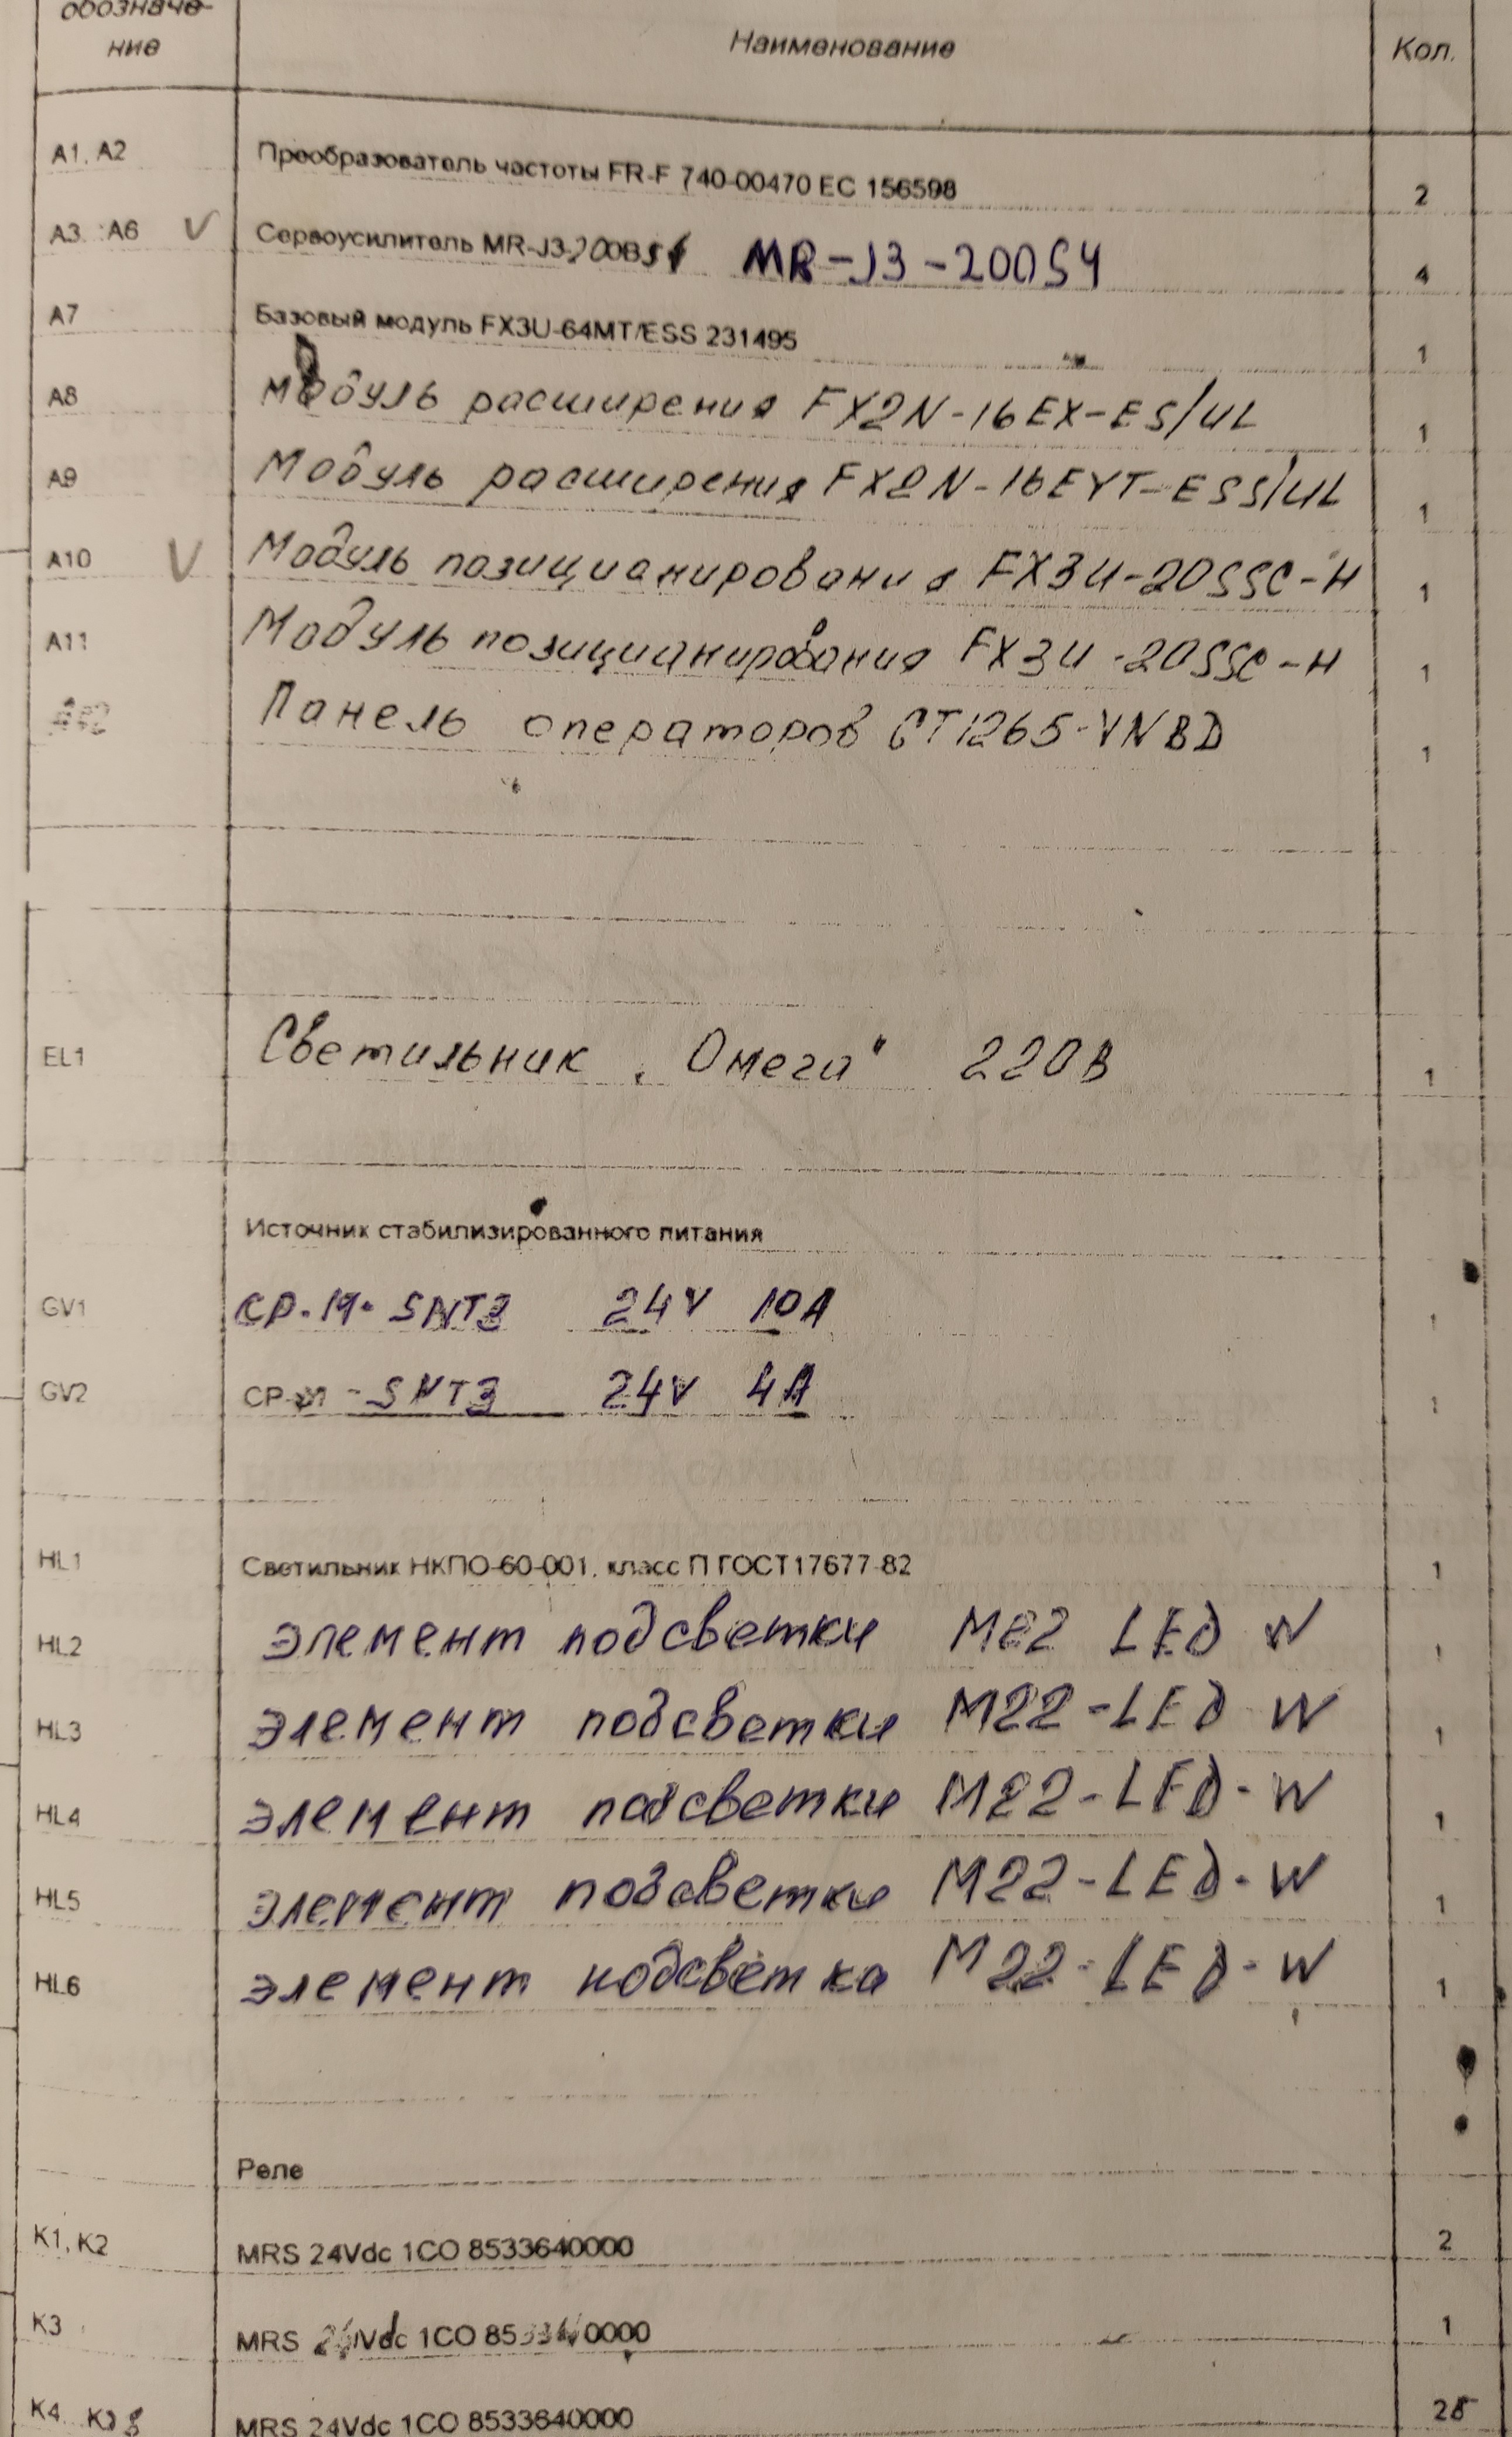 обозначе-
ние Наименование Кол.
A1, A2 Преобразователь частоты FR-F 740-00470 EC 156598 2
A3 A6 V Сервоусилитель MR-J3-200B MR-J3-200S4 4
A7 Базовый модуль FX3U-64MT/ESS 231495 1
A8 Модуль расширения FX2N-16EX-ES/UL 1
A9 Модуль расширения FX2N-16EYT-ESS/UL 1
A10 V Модуль позицианирования FX3U-20SSC-H 1
A11 Модуль позицианирования FX3U-20SSC-H 1
Панель операторов GT1265-VNBD 1
EL1 Светильник "Омега" 220В 1
Источник стабилизированного питания
GV1 SNT3 24V 10A 1
GV2 CP -SNT3 24V 4A 1
HL1 Светильник НКПО-60-001, класс П ГОСТ17677-82 1
HL2 элемент подсветки M22 LED W 1
HL3 элемент подсветки M22-LED W 1
HL4 элемент подсветки M22-LED-W 1
HL5 элемент подсветки M22-LED-W 1
HL6 элемент подсветка M22-LED-W 1
Реле
K1, K2 MRS 24Vdc 1CO 8533640000 2
K3 MRS 24Vdc 1CO 1
K4 MRS 24Vdc 1CO 8533640000